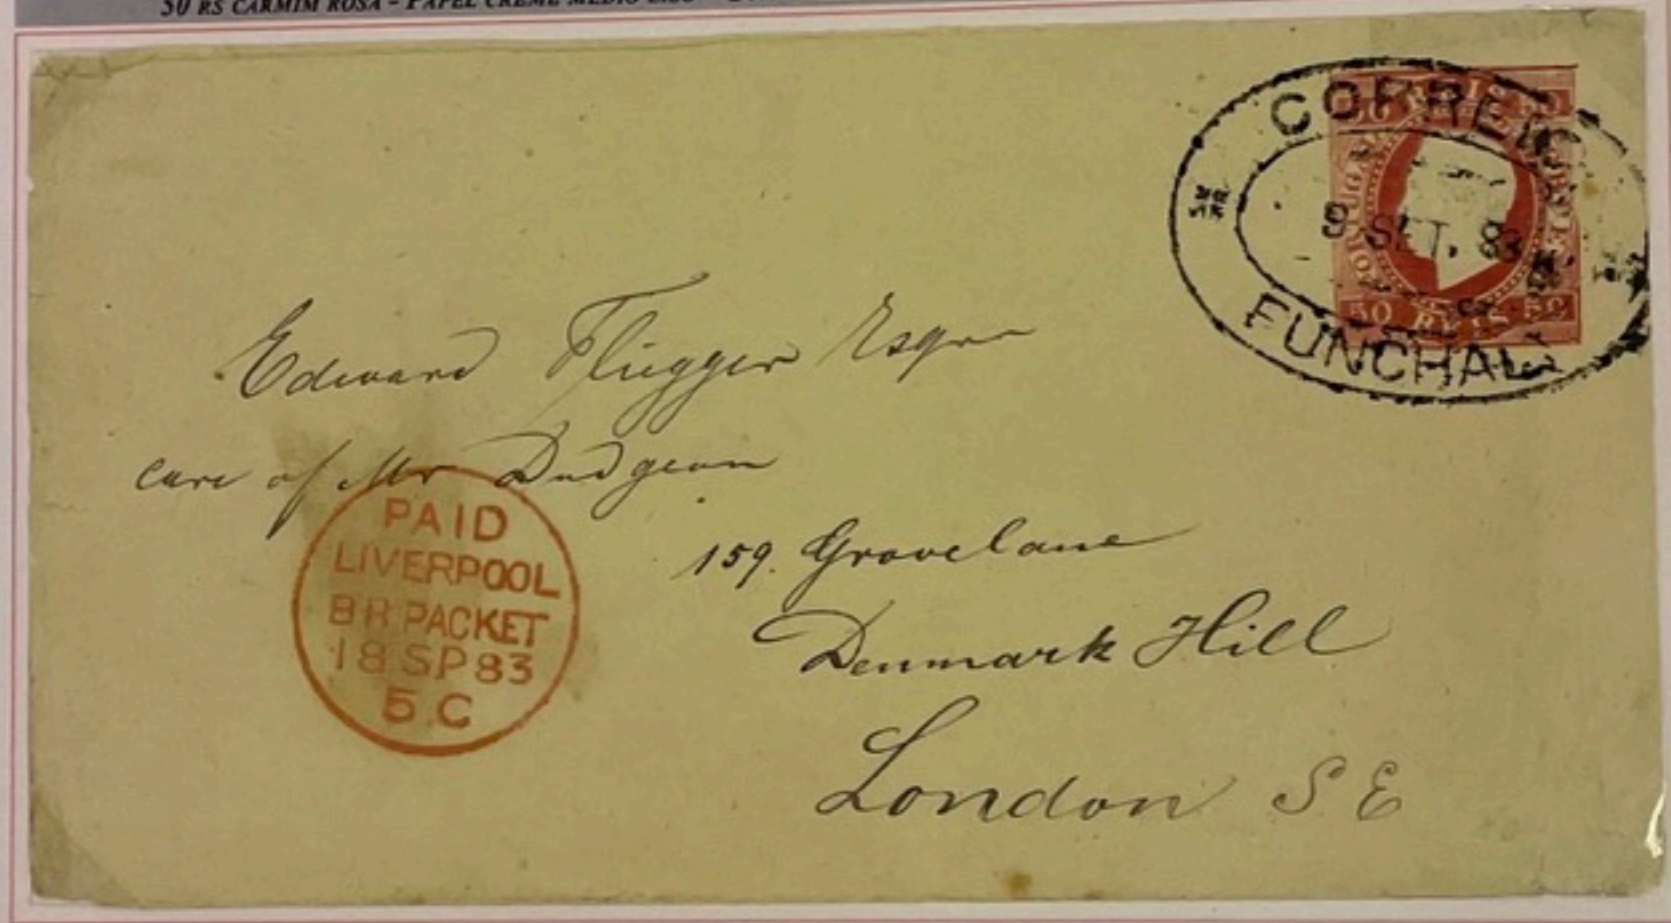 50 RS CARMIM ROSA - PAPEL CREME MÉDIO LISO
CORREIO
9 SET. 83
FUNCHAL
50 REIS 50
PORTUGAL
50 REIS 50
Edward Flügger Esqre
care of Mr Dudgeon
159. Grovelane
Denmark Hill
London S E
PAID
LIVERPOOL
BR PACKET
18 SP 83
5 C